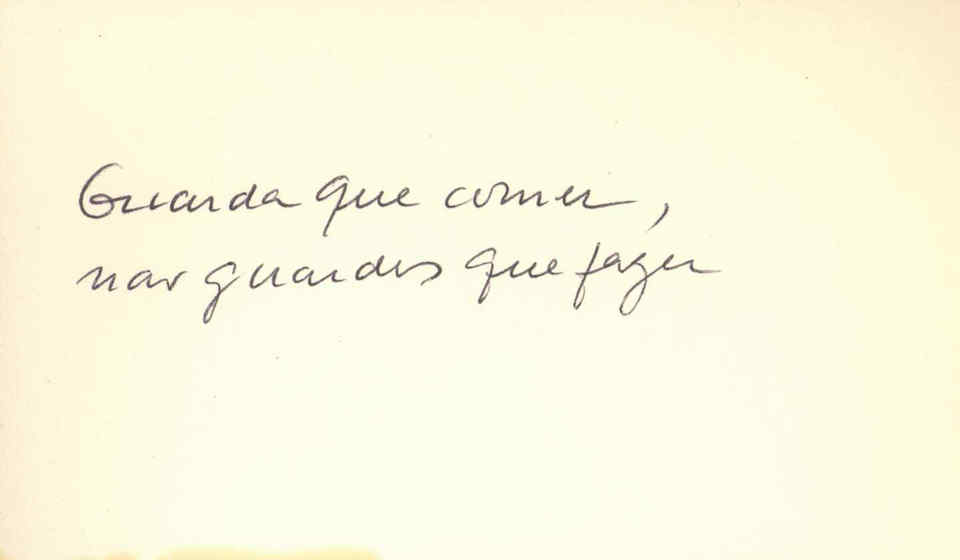 Guarda que comer,
não guardes que fazer